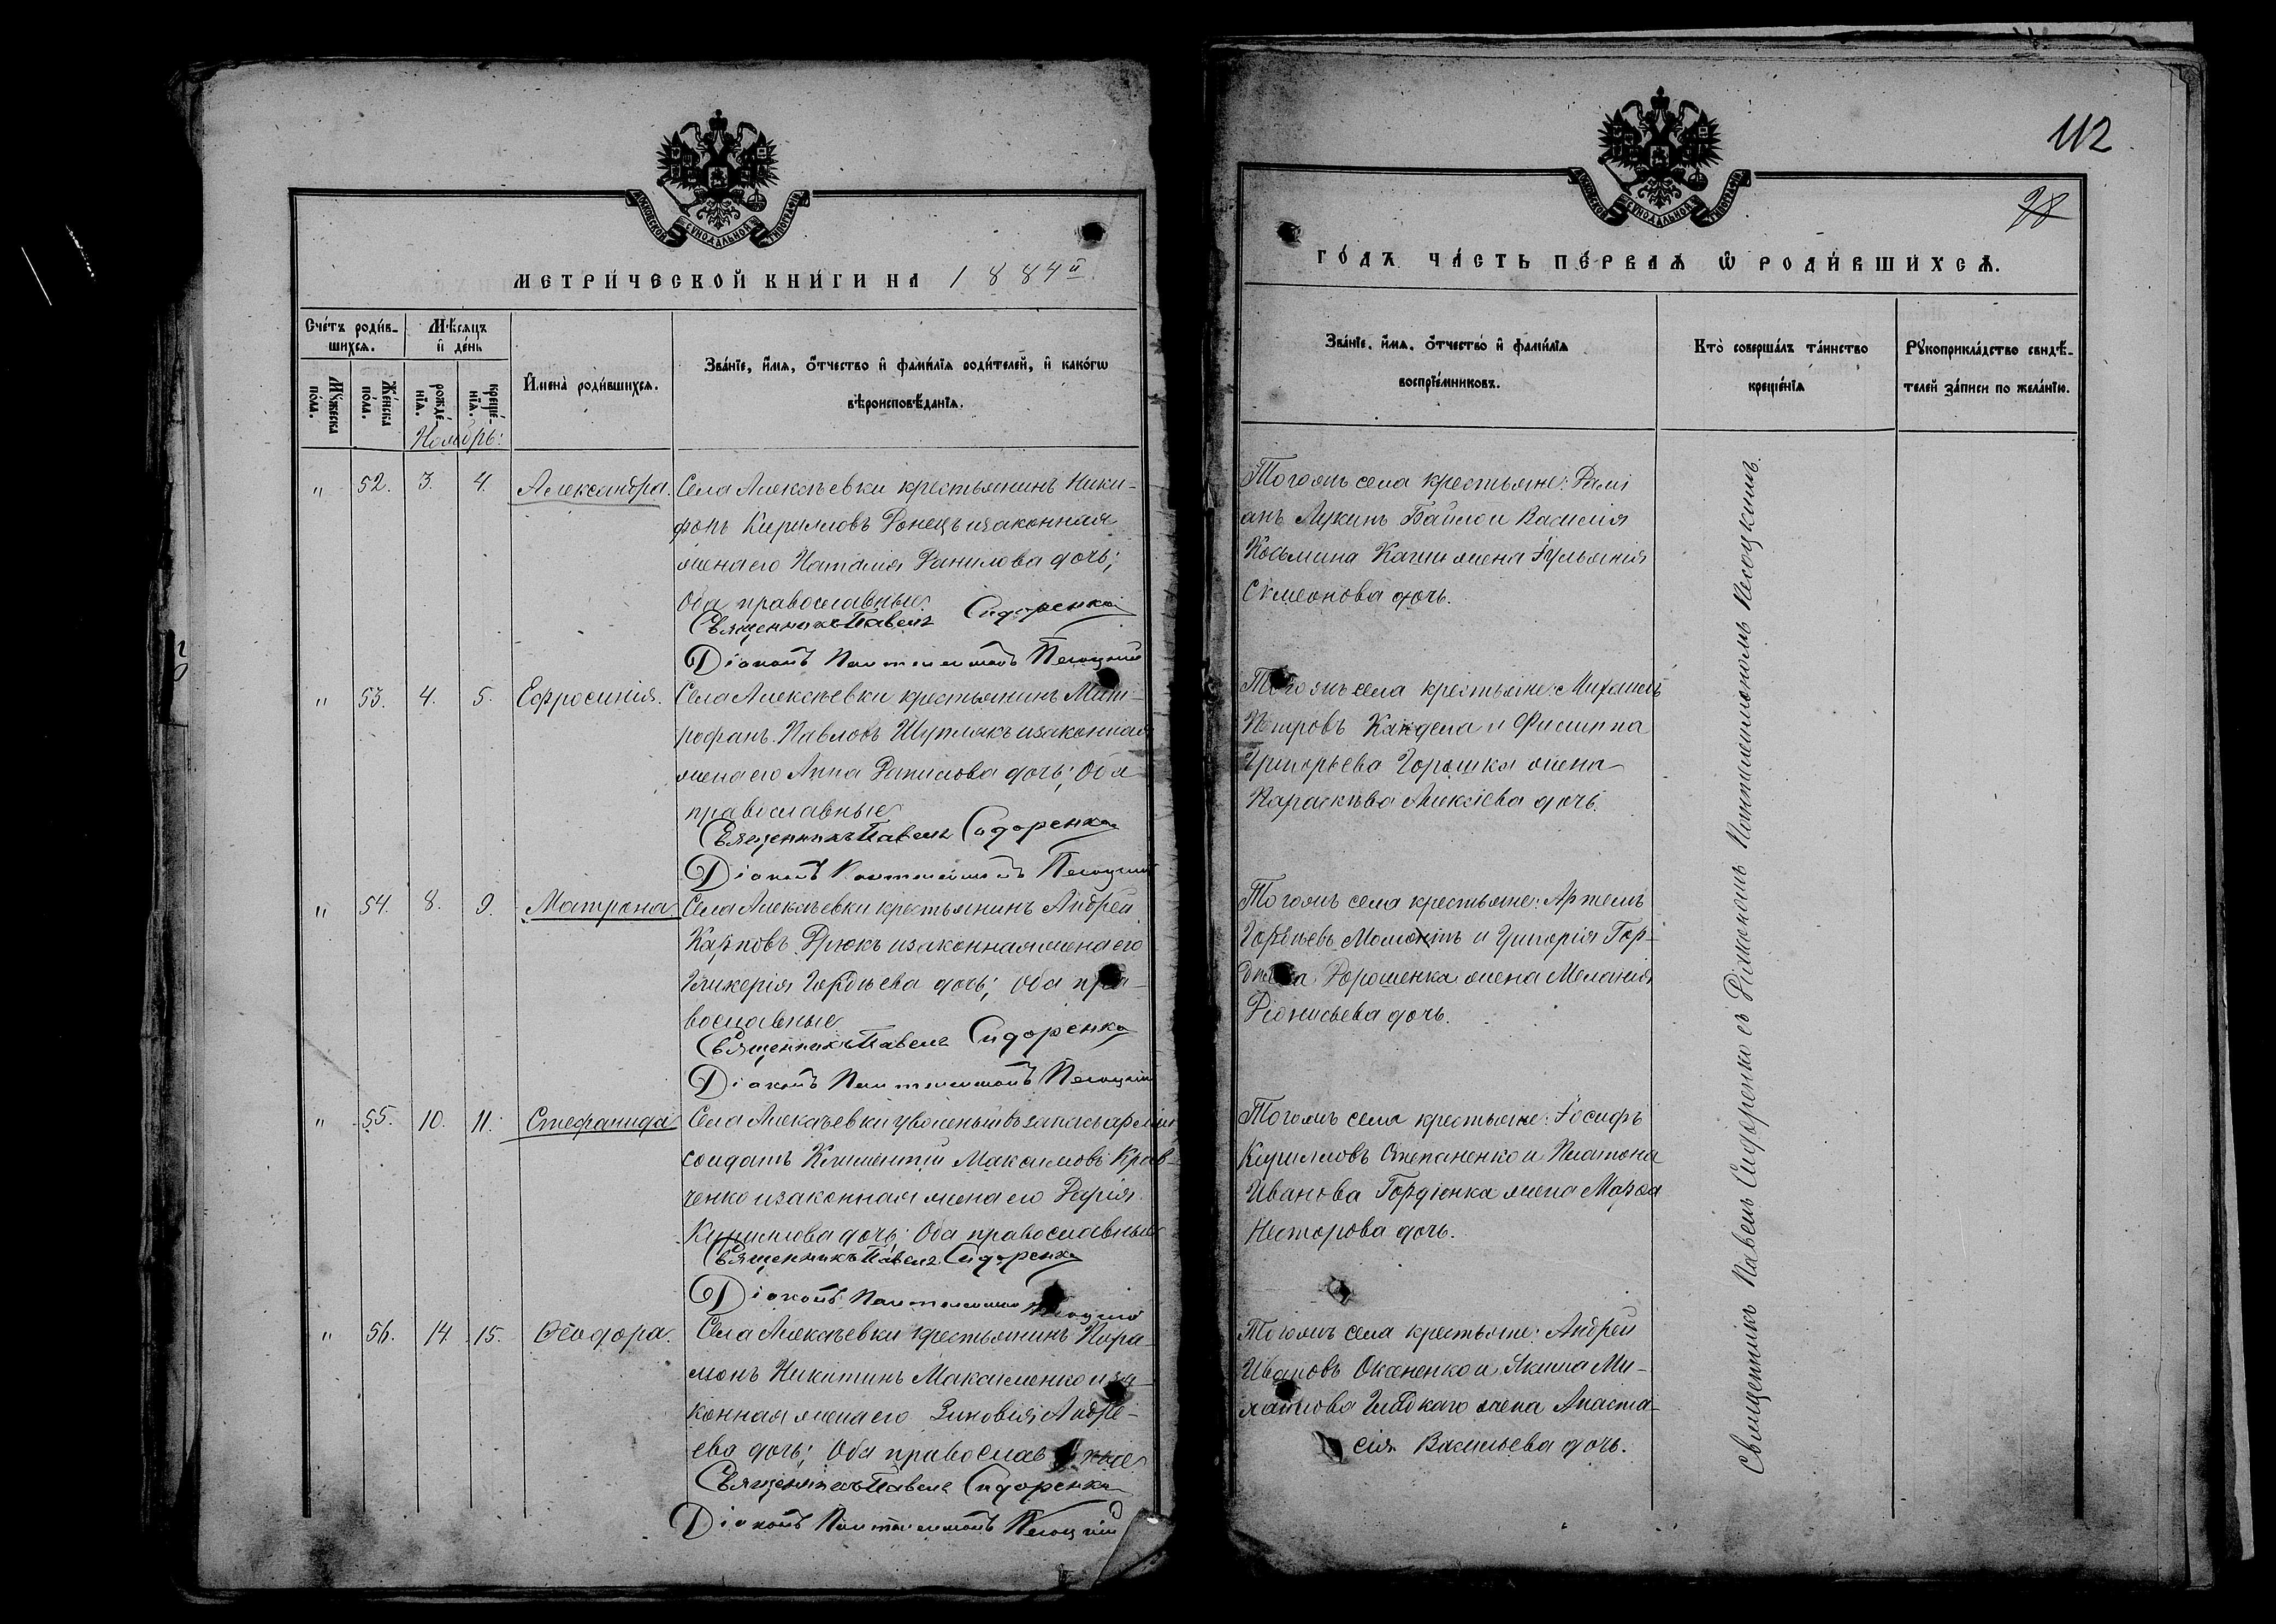 112
98
МОСКОВСКОЙ СѴНОДАЛЬНОЙ ТИПОГРАФІИ
МЕТРИ́ЧЕСКОЙ КНИ́ГИ НА 1884й
Сче́тъ роди́в-
шихсѧ.
Мѣ́сѧцъ
и҆ де́нь
Мꙋ́жеска по́ла.
Же́нска по́ла.
рожде́нїѧ.
креще́нїѧ.
И҆мена̀ роди́вшихсѧ.
Зва́нїе, и҆́мѧ, ѻ҆́тчество и҆ фами́лїѧ роди́телей, и҆ како́гѡ
вѣроисповѣ́данїѧ.
Ноябрь:
" 52. 3. 4. Александра. Села Алексѣевки крестьянинъ Ники-
форъ Кирилловъ Донецъ изаконная
жена его Наталія Данилова дочь;
Оба православные
Священникъ Павелъ Сидоренко
Діаконъ Пантелеимонъ
" 53. 4. 5. Ефросинія. Села Алексѣевки крестьянинъ Мит-
рофанъ Павловъ изаконная
жена его Анна Данилова дочь; Оба
православные
Священникъ Павелъ Сидоренко
Діаконъ Пантелеимонъ
" 54. 8. 9. Матрона Села Алексѣевки крестьянинъ Андрей
Карповъ Дрюкъ изаконная жена его
Гликерія Гордѣева дочь; Оба пра-
вославные
Священникъ Павелъ Сидоренко
Діаконъ Пантелеимонъ
" 55. 10. 11. Стефанида Села Алексѣевки уволенный въ запасъ арміи
солдатъ Климентій Максимовъ Крав-
ченко изаконная жена его Дарія
Кириллова дочь; Оба православные
Священникъ Павелъ Сидоренко
Діаконъ Пантелеимонъ
" 56. 14. 15. Ѳеодора. Села Алексѣевки крестьянинъ Пара-
монъ Никитинъ Максименко иза-
конная жена его Зиновія Андре-
ева дочь; Оба православные
Священникъ Павелъ Сидоренко
Діаконъ Пантелеимонъ
МОСКОВСКОЙ СѴНОДАЛЬНОЙ ТИПОГРАФІИ
ГО́ДЪ ЧА́СТЬ ПЕ́РВАѦ Ѡ҆ РОДИ́ВШИХСѦ.
Зва́нїе, и҆́мѧ, ѻ҆́тчество и҆ фами́лїѧ
воспрїе́мниковъ.
Кто̀ соверша́лъ та́инство
креще́нїѧ
Рꙋкоприкла́дство свидѣ́-
телей за́писи по жела́нїю.
Тогожъ села крестьяне: Дамі
анъ Лукинъ Байло и Василія
Косьмина жена Іульянія
Сѵмеонова дочь.
Тогожъ села крестьяне: Михаилъ
Петровъ Кандела и Филиппа
Григорьева Горошка жена
Параскева Алексіева дочь.
Тогожъ села крестьяне: Артемъ
Гордѣевъ и Григорія Гор-
дѣева Дорошенка жена Меланія
Діонисьева дочь.
Тогожъ села крестьяне: Іосифъ
Кирилловъ Степаненко и Платона
Иванова Гордіенка жена Марѳа
Несторова дочь.
Тогожъ села крестьяне: Андрей
Ивановъ и Якима Ми-
хайлова Гладкаго жена Анаста-
сія Васильева дочь.
Священникъ Павелъ Сидоренко съ Діакономъ Пантелеимономъ